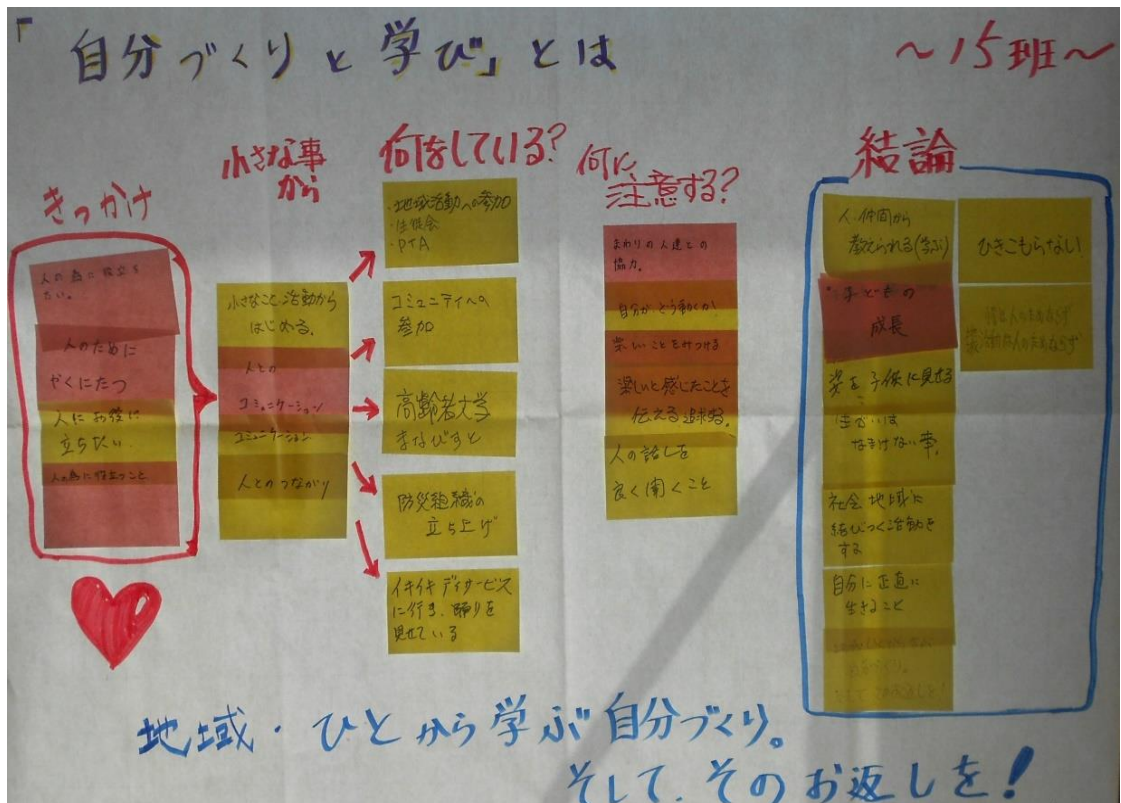 「自分づくりと学び」とは
～15班～
きっかけ
人の為に役立ち
たい。
人のために
やくにたつ
人にお役に
立ちたい
人の為に役立つこと
小さな事
から
小さなこと活動から
はじめる。
人との
コミュニケーション
コミュニケーション
人とのつながり
何をしている?
・地域活動への参加
・生徒会
・PTA
コミュニティへの
参加
高齢者大学
まなびすと
防災組織の
立ち上げ
イキイキデイサービス
に行き、踊りを
見せている
何に
注意する?
まわりの人達との
協力。
自分がどう動くか!
楽しいことをみつける
楽しいと感じたことを
伝える追求する。
人の話しを
良く聞くこと
結論
人・仲間から
教えられる(学ぶ)
子どもの
成長
姿を子供に見せる
なまけない事。
社会地域に
結びつく活動を
する
自分に正直に
生きること
ひきこもらない
地域・ひとから学ぶ自分づくり。
そして、そのお返しを!